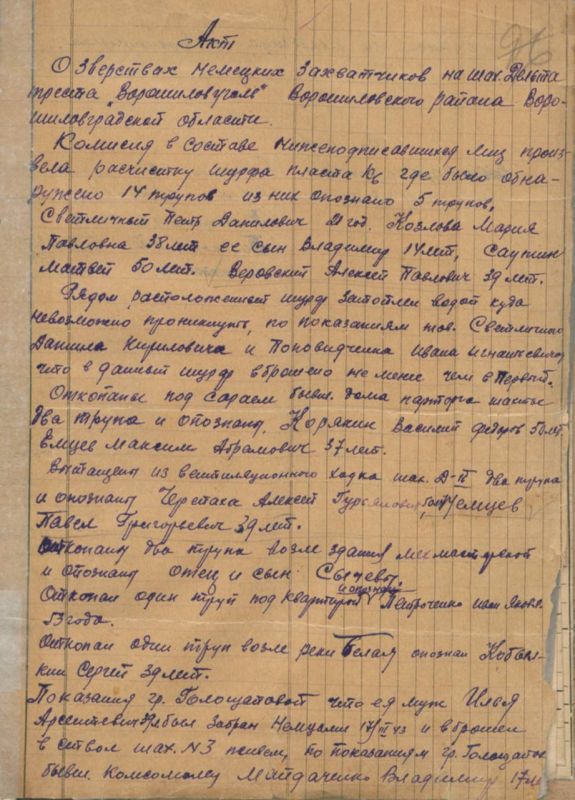 96
Акт
О Зверствах Немецких Захватчиков на шах. Дельта
треста "Ворошиловуголь" Ворошиловского района Воро-
шиловградской области.
Комисия в составе нижеподписавшихся лиц произ-
вела расчистку шурфа пласта К6 где было обна-
ружено 14 трупов из них опознано 5 трупов,
Светличный Петр Данилович год. Козлова Мария
Павловна 38 лет ее сын Владимир 14 лет, Саутин
Матвей 50 лет. Веровский Алексей Павлович 39 лет.
Рядом расположенный шурф затоплен водой куда
невозможно проникнуть, по показаниям тов. Светличного
Данила Кириловича и Поповидченка Ивана Игнатьевича
что в данный шурф вброшено не менее чем в Первый.
Откопаны под сараем бывш. дома парторга шахты
два трупа и опознаны, Корякин Василий федоров 50 лет
Емцев Максим Абрамович 37 лет.
Вытащены из вентиляционного ходка шах. Д-IV два трупа
и опознаны Черепаха Алексей Гурьянович, Чемцев
Павел Григорьевич 39 лет.
Откопаны два трупа возле здания мехмастерской
и опознаны отец и сын Сычевы.
Откопан один труп под квартирой и опознан Петроченко Яковл.
53 года.
Откопан один труп возле реки Белая опознан Кобыл-
кин Сергей 39 лет.
Показания гр. Голощаповой что ея муж Илья
Арсентиевич был забран Немцами 17/ 43 и вброшен
в ствол шах. N3 живем, по показаниям гр. Голощапов
бывш. комсомолец Майдаченко Владимир 17 л